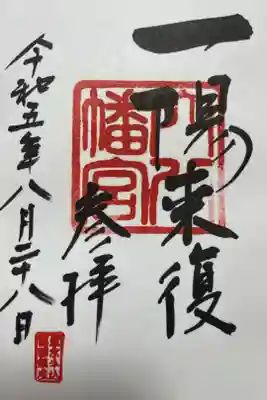 一陽来復
参拝
令和五年八月二十八日
幡宮